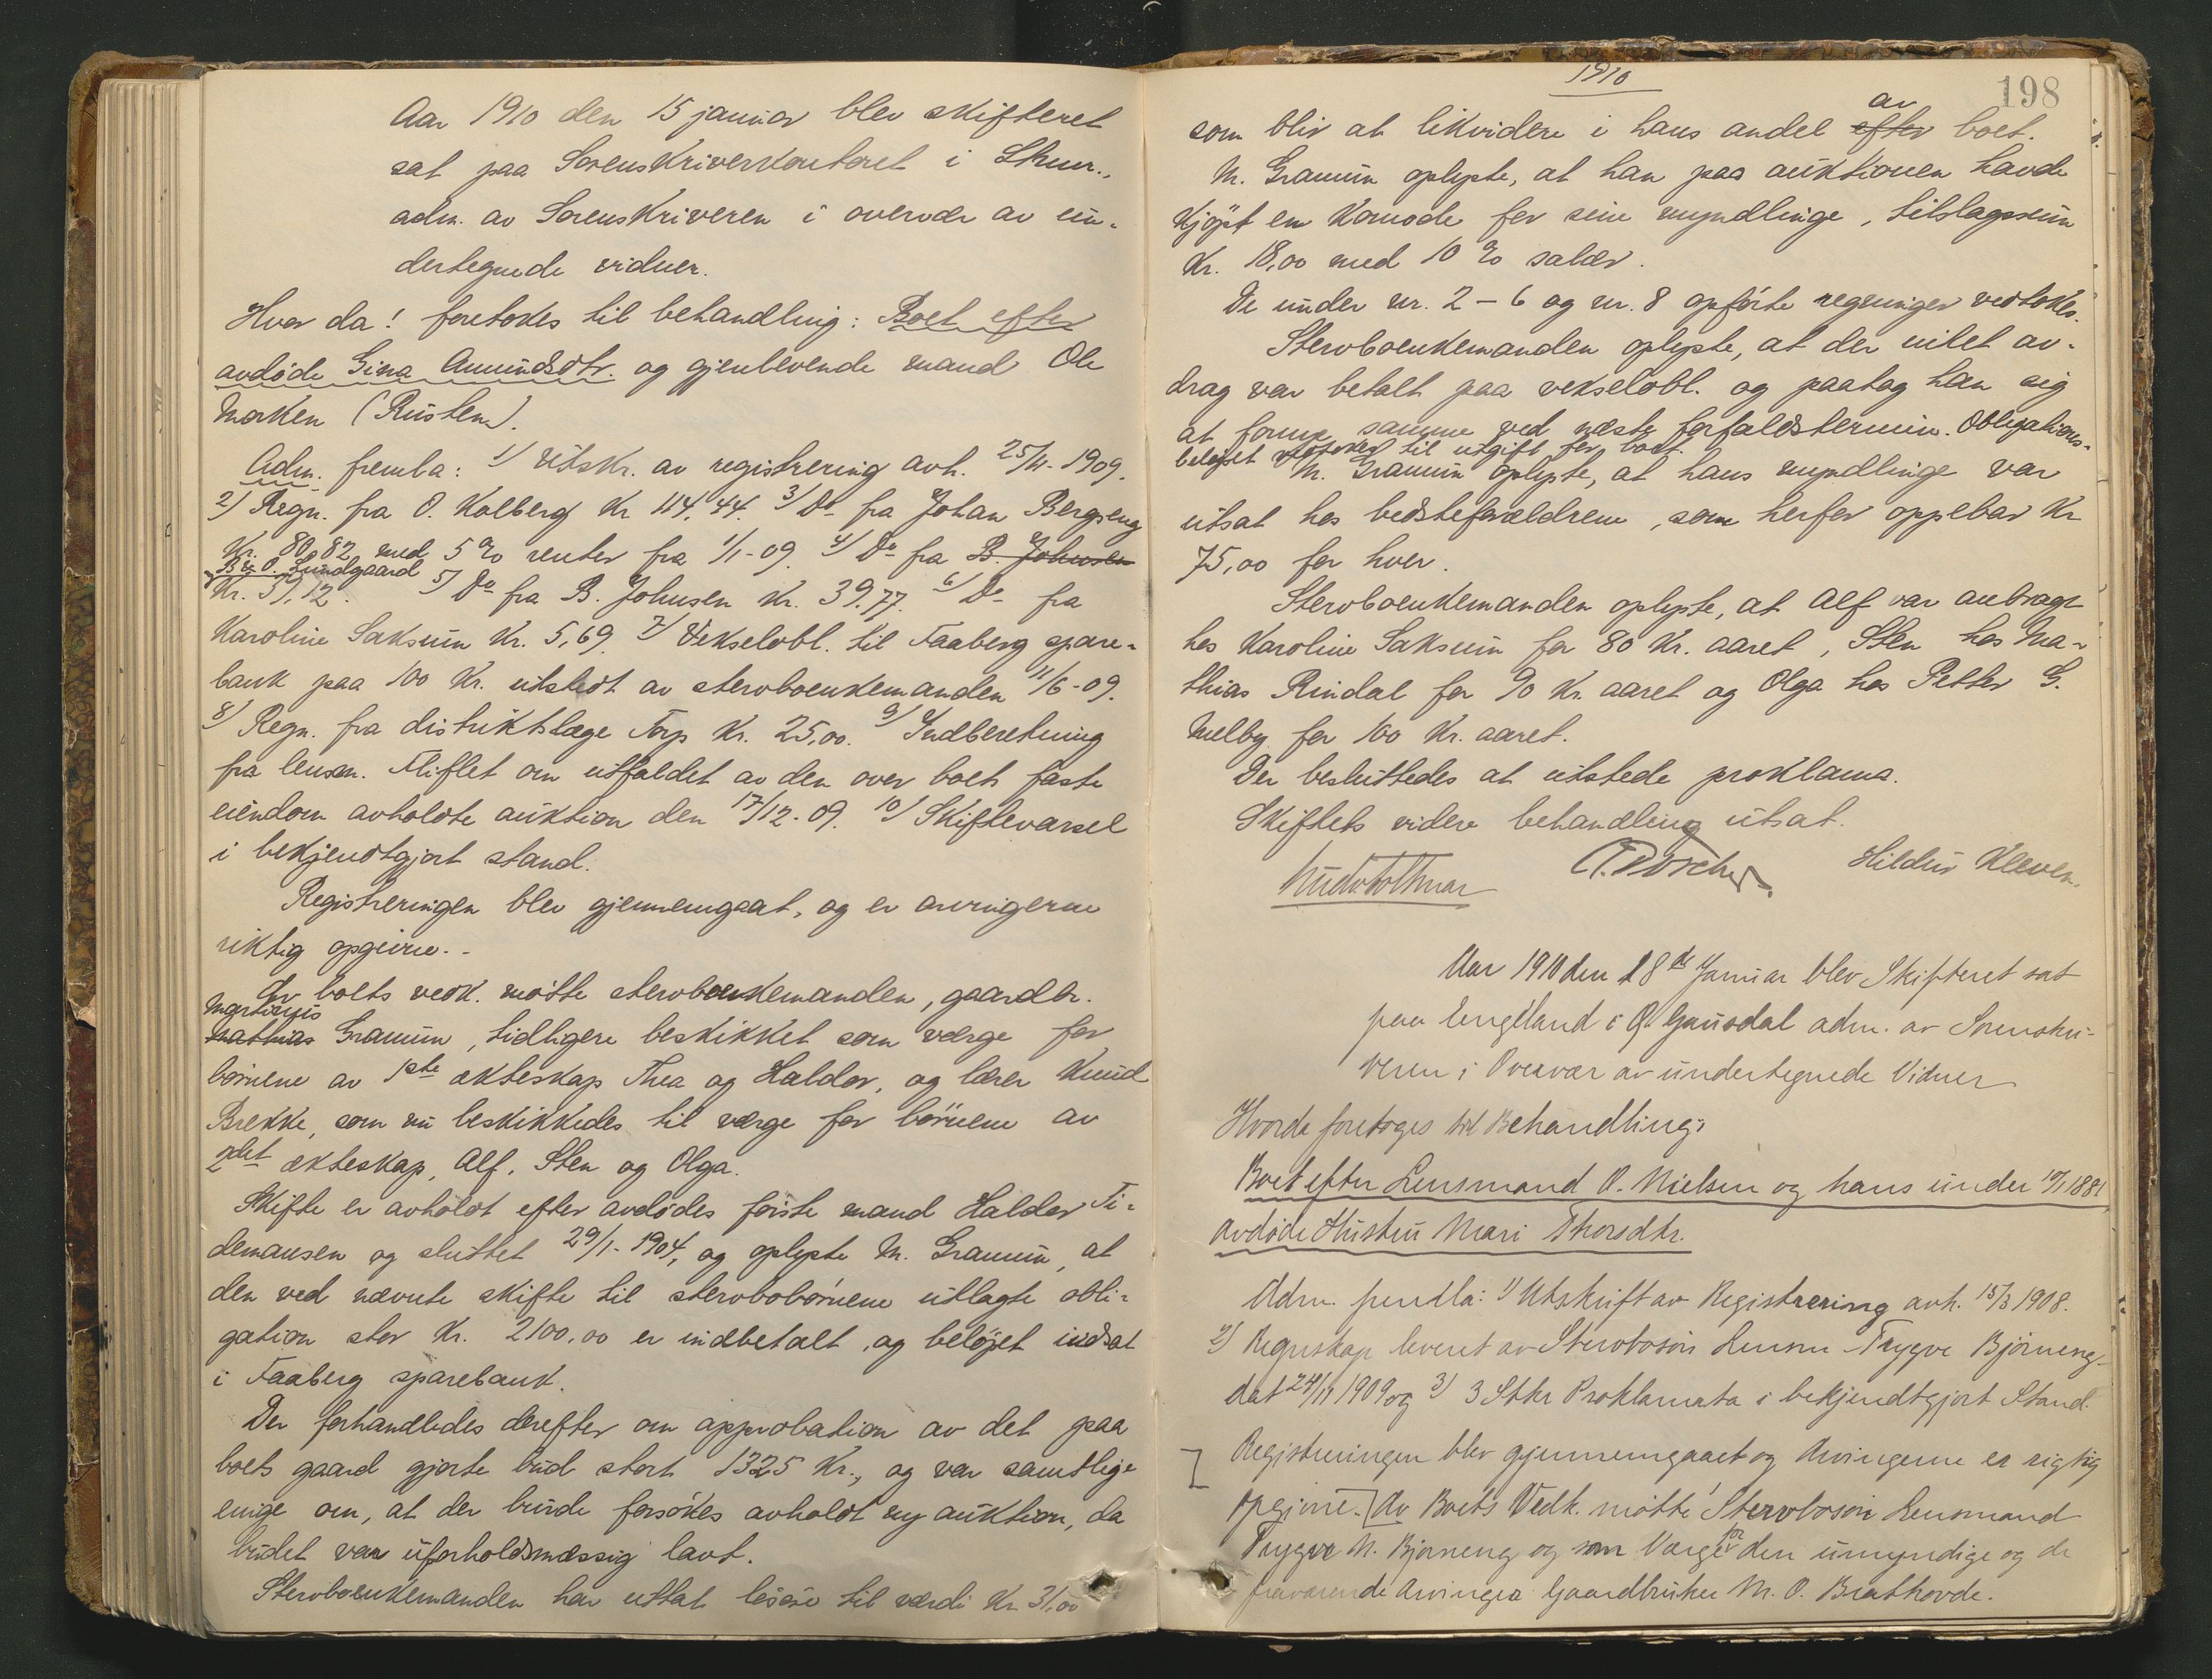 Aar 1910 den 15 januar blev skifteret
sat paa Sorenskriverkontoret i Lhmr.,
adm. av Sorenskriveren i overvær av un-
dertegnede vidner.
Hvor da! foretokes til behandling: Boet efter
avdøde Gina Amundsdtr. og gjenlevende mand Ole
Morken (Rusten).
Adm. fremla: 1/ Utskr. av registrering avh. 25/11-1909.
2/ Regn. fra O. Kolberg Kr 114,44. 3/ Do fra Johan Bergseng
Kr. 80,82 med 5 % renter fra 1/1-09. 4/ Do fra B. Johnsen
B & O. Lundgaard
Kr. 51,12. 5/ Do fra B. Johnsen Kr. 39.77. 6/ Do fra
Karoline Saksum Kr. 5,69. 7/ Vekselobl. til Faaberg spare-
bank paa 100 Kr. utstedt av stervboenkemanden 11/6-09.
8/ Regn. fra distriktslæge Torp Kr. 25,00. 9/ Indberetning
fra lensm. Fliflet om utfaldet av den over boets faste
eiendom avholdte auktion den 17/12-09. 10/ Skiftevarsel
i bekjendtgjort stand.
Registreringen blev gjennemgaat, og er arvingerne
riktig opgivne.-
Av boets vedk. møtte stervboenkemanden, gaardbr.
Martinius
Mathias Gramum, tidligere beskikket som værge for
børnene av 1ste ekteskap Thea og Haldor, og lærer Knud
Brekke, som nu beskikkedes til værge for børnene av
2det ekteskap, Alf, Sten og Olga.
Skifte er avholdt efter avdødes første mand Haldor Ti-
demansen og sluttet 29/1-1904, og oplyste M. Gramum, at
den ved nævnte skifte til stervbobørnene utlagte obli-
gation stor Kr. 2100,00 er indbetalt, og beløpet indsat
i Faaberg sparebank.
Der forhandledes derefter om approbation av det paa
boets gaard gjorte bud stort 1325 Kr., og var samtlige
enige om, at der burde forsøkes avholdt ny auktion, da
budet var uforholdsmæssig lavt.
Stervboenkemanden har uttat løsøre til værdi Kr 31,00
1910
198
av
som blir at likvidere i hans andel efter boet.
M. Gramum oplyste, at han paa auktionen havde
kjøpt en Komode for sine myndlinge, tilslagssum
Kr. 18,00 med 10 % salær.
De under nr. 2 - 6 og nr. 8 opførte regninger vedtokes.
Stervboenkemanden oplyste, at der intet av-
drag var betalt paa vekselobl. og paatog han sig
at fornye samme ved næste forfaldstermin. Obligations-
beløpet vedtokes til utgift for boet.
M. Gramum oplyste, at hans myndlinge var
utsat hos bedsteforældrene, som herfor oppebar Kr
75,00 for hver.
Stervboenkemanden oplyste, at Alf var anbragt
hos Karoline Saksum for 80 Kr. aaret, Sten hos Ma-
thias Rindal for 90 Kr. aaret og Olga hos Petter G.
Melby for 100 Kr. aaret.
Der besluttedes at utstede proklama.
Skiftets videre behandling utsat.
Hildur Kleven.
Aar 1910 den 18de Januar blev Skifteret sat
paa Engeland i Ø. Gausdal adm. av Sorenskri-
veren i Overvær av undertegnede Vidner
Hvorda foretoges til Behandling:
Boet efter Lensmand O. Nielsen og hans under 19/1 1881
avdøde Hustru Mari Thorsdtr.
Adm. fremla: 1) Utskrift av Registrering avh. 15/3 1908.
2) Regnskap leveret av Stervboson Lensm Trygve Bjørneng
dat 24/11 1909 og 3) 3 Stkr Proklamata i bekjendtgjort Stand.
Registreringen blev gjennemgaaet og Arvingerne er rigtig
opgivne. Av Boets Vedk. møtte Stervboson Lensmand
for
Trygve N. Bjørneng og som Værge den umyndige og de
fraværende Arvinger Gaardbruker M. O. Brathovde.